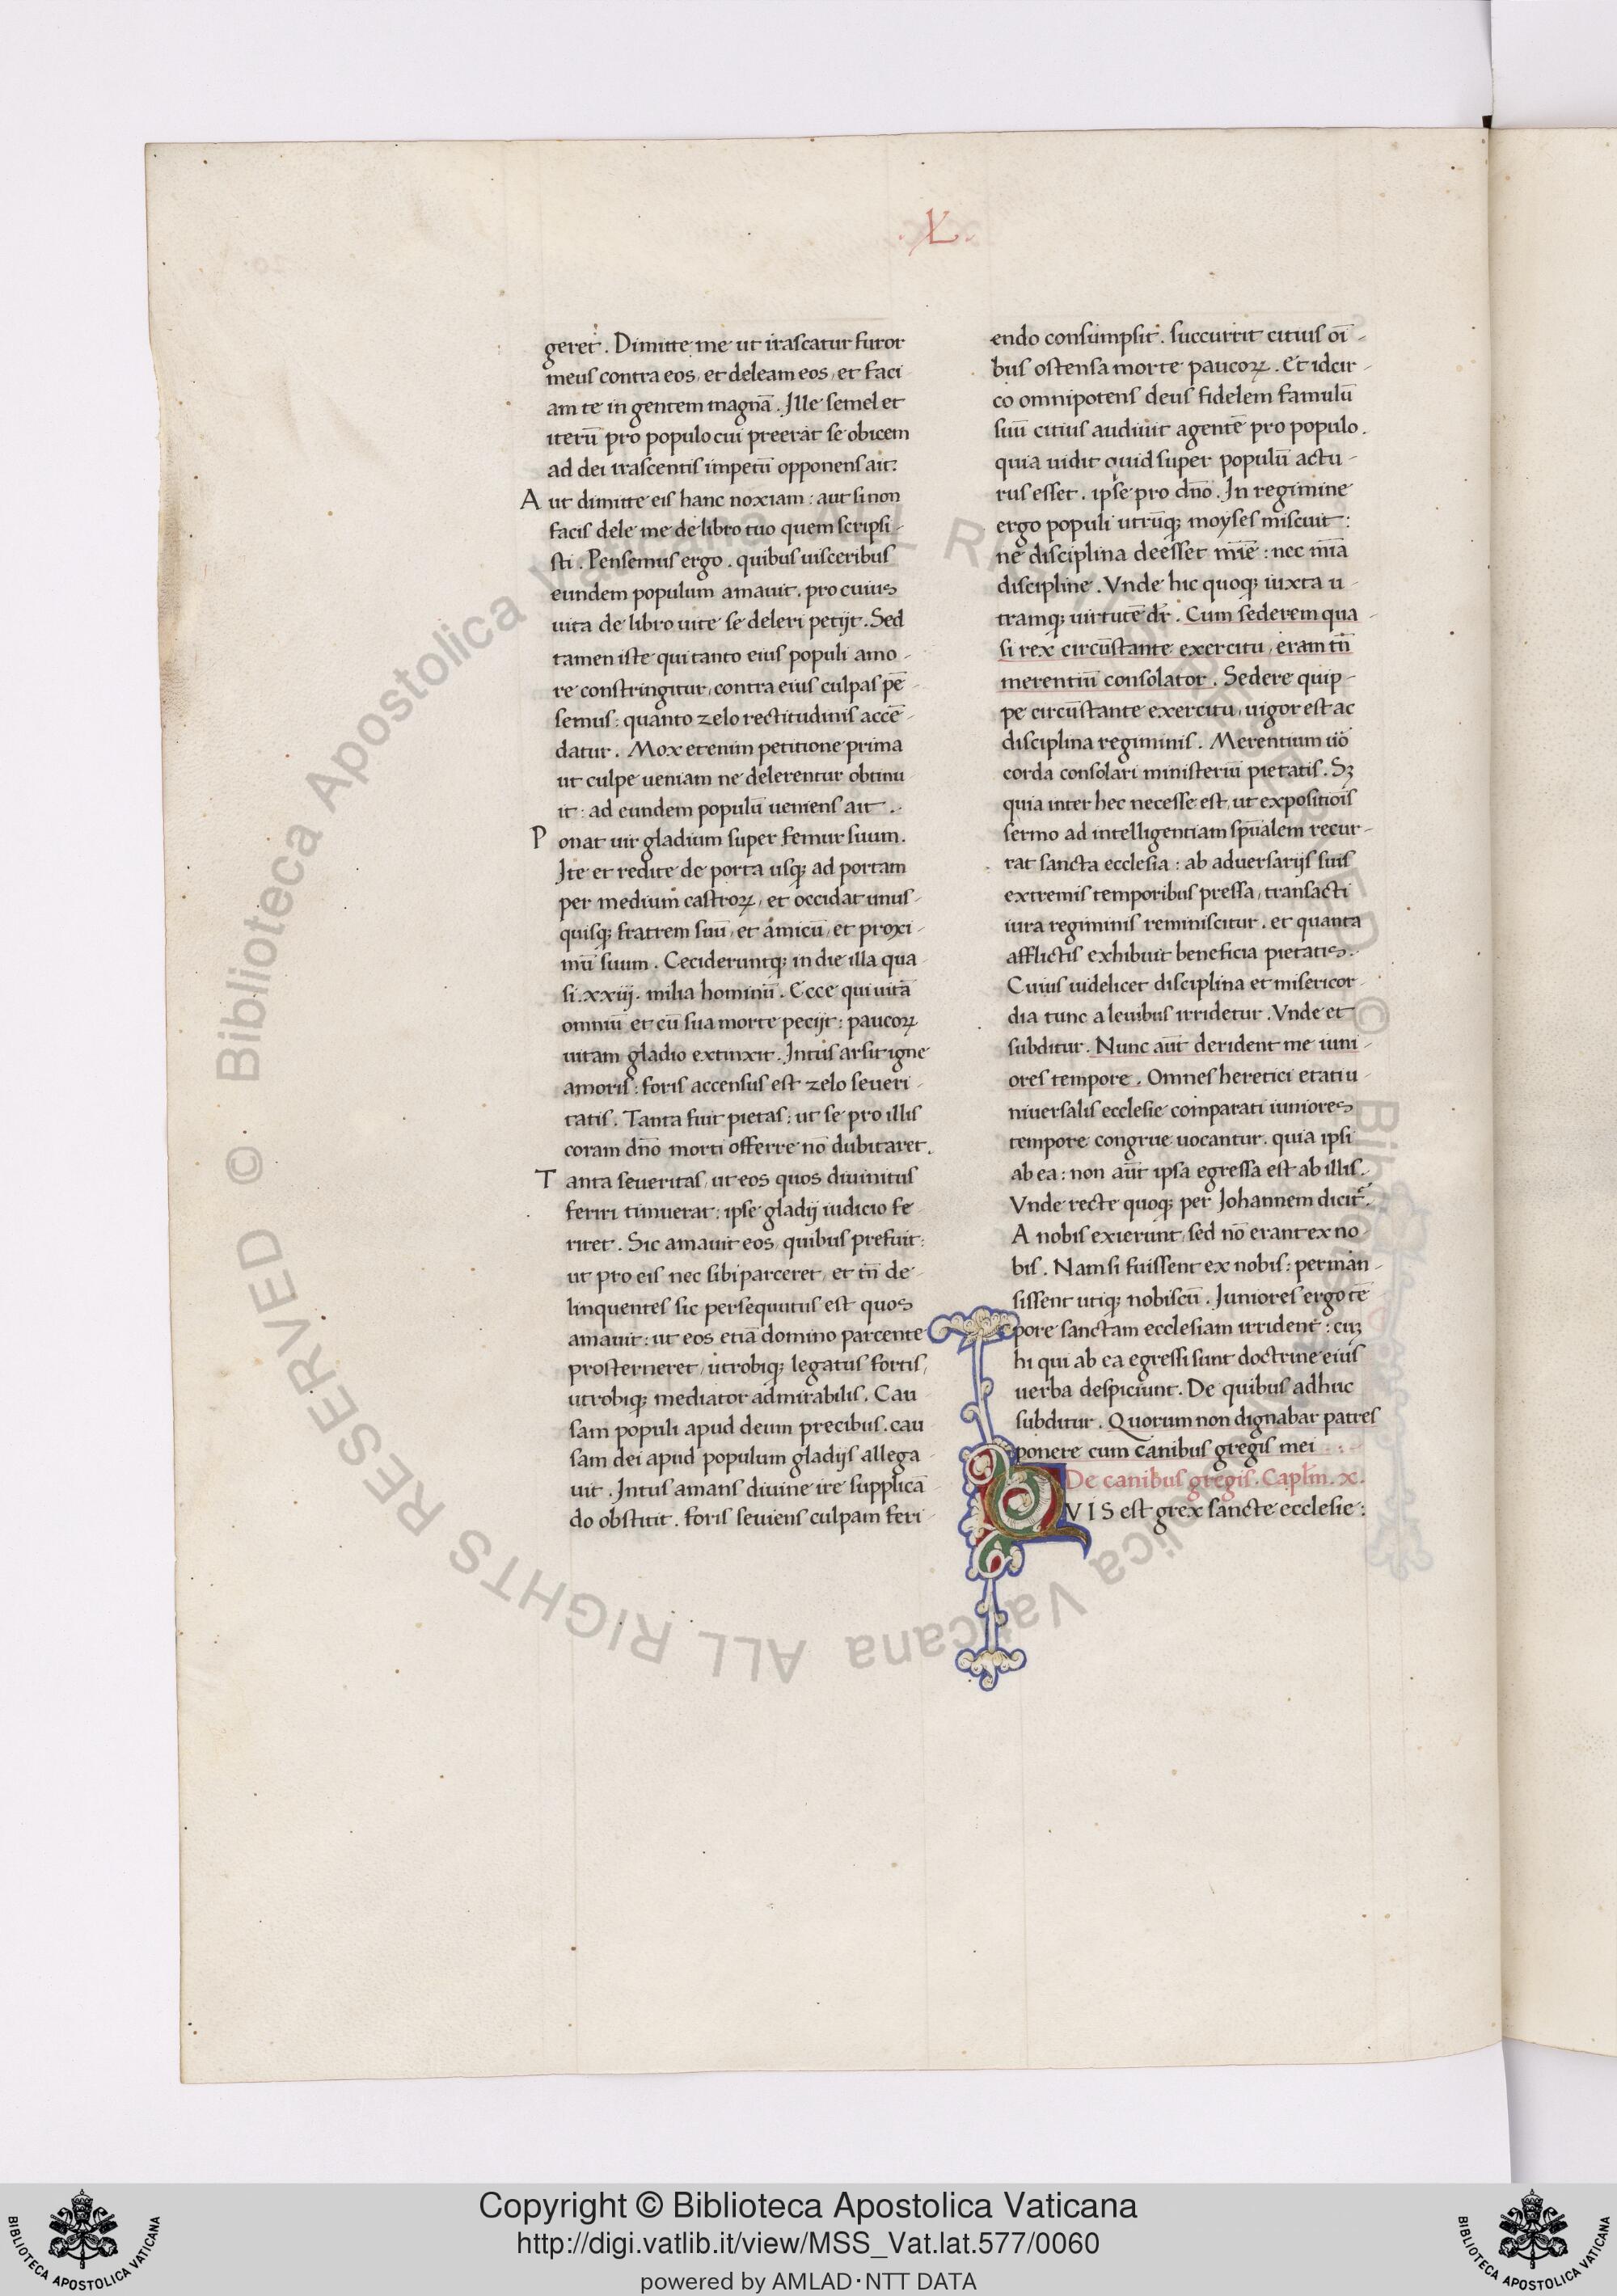 .XL.
geret. Dimitte me ut irascatur furor
meus contra eos, et deleam eos, et faci
am te in gentem magnā. Ille semel et
iterū pro populo cui preerat se obicem
ad dei irascentis impetū opponens ait:
Aut dimitte eis hanc noxiam: aut si non
facis dele me de libro tuo quem scripsi-
sti. Pensemus ergo. quibus uisceribus
eundem populum amauit, pro cuius
uita de libro uite se deleri petijt. Sed
tamen iste qui tanto eius populi amo-
re constringitur, contra eius culpas pē-
semus: quanto zelo rectitudinis accē-
datur. Mox etenim petitione prima
ut culpe ueniam ne delerentur obtinu
it: ad eundem populū ueniens ait.
Ponat uir gladium super femur suum.
Ite et redite de porta usq; ad portam
per medium castroꝝ, et occidat unus-
quisq; fratrem suū, et amicū, et proxi-
mū suum. Cecideruntq; in die illa qua
si .xxiij. milia hominū. Ecce qui uitā
omniū et cū sua morte peciit: paucoꝝ
uitam gladio extinxit. Intus arsit igne
amoris: foris accensus est zelo seueri-
tatis. Tanta fuit pietas: ut se pro illis
coram dn̄o morti offerre nō dubitaret.
Tanta seueritas, ut eos quos diuinitus
feriri timuerat: ipse gladij iudicio fe-
riret. Sic amauit eos, quibus prefuit:
ut pro eis nec sibi parceret, et tn̄ de-
linquentes sic persequutus est quos
amauit: ut eos etiā domino parcente
prosterneret, utrobiq; legatus fortis,
utrobiq; mediator admirabilis. Cau
sam populi apud deum precibus. cau
sam dei apud populum gladijs allega-
uit. Intus amans diuine ire supplicā
do obstitit. foris seuiens culpam feri-
endo consumpsit. succurrit citius oī-
bus ostensa morte paucoꝝ. Et idcir-
co omnipotens deus fidelem famulū
suū citius audiuit agentē pro populo.
quia uidit quid super populū actu-
rus esset. ipse pro dn̄o. In regimine
ergo populi utrūq; moyses miscuit:
ne disciplina deesset mīe: nec mīa
discipline. Vnde hic quoq; iuxta u-
tramq; uirtutē dr̄. Cum sederem qua-
si rex circūstante exercitu, eram tn̄
merentiū consolator. Sedere quip-
pe circūstante exercitu, uigor est ac
disciplina regiminis. Merentium uō
corda consolari ministeriū pietatis. Sꝫ
quia inter hec necesse est, ut expositiōis
sermo ad intelligentiam sp̄ualem recur-
rat sancta ecclesia: ab aduersarijs suis
extremis temporibus pressa, transacti
iura regiminis reminiscitur. et quanta
afflictis exhibuit beneficia pietatis.
Cuius uidelicet disciplina et misericor-
dia tunc a leuibus irridetur. Vnde et
subditur. Nunc aūt derident me iuni-
ores tempore. Omnes heretici etati u-
niuersalis ecclesie comparati iuniores
tempore congrue uocantur. quia ipsi
ab ea: non aūt ipsa egressa est ab illis.
Vnde recte quoq; per Johannem dicit̄.
A nobis exierunt, sed nō erant ex no-
bis. Nam si fuissent ex nobis: perman-
sissent utiq; nobiscū. Juniores ergo tē-
pore sanctam ecclesiam irrident: cuꝫ
hi qui ab ea egressi sunt doctrine eius
uerba despiciunt. De quibus adhuc
subditur. Quorum non dignabar patres
ponere cum canibus gregis mei
De canibus gregis. Caplm̄. x.
QVIS est grex sancte ecclesie:
© Biblioteca Apostolica Vaticana ALL RIGHTS RESERVED
© Biblioteca Apostolica Vaticana ALL RIGHTS RESERVED
BIBLIOTECA APOSTOLICA VATICANA
Copyright © Biblioteca Apostolica Vaticana
http://digi.vatlib.it/view/MSS_Vat.lat.577/0060
powered by AMLAD·NTT DATA
BIBLIOTECA APOSTOLICA VATICANA